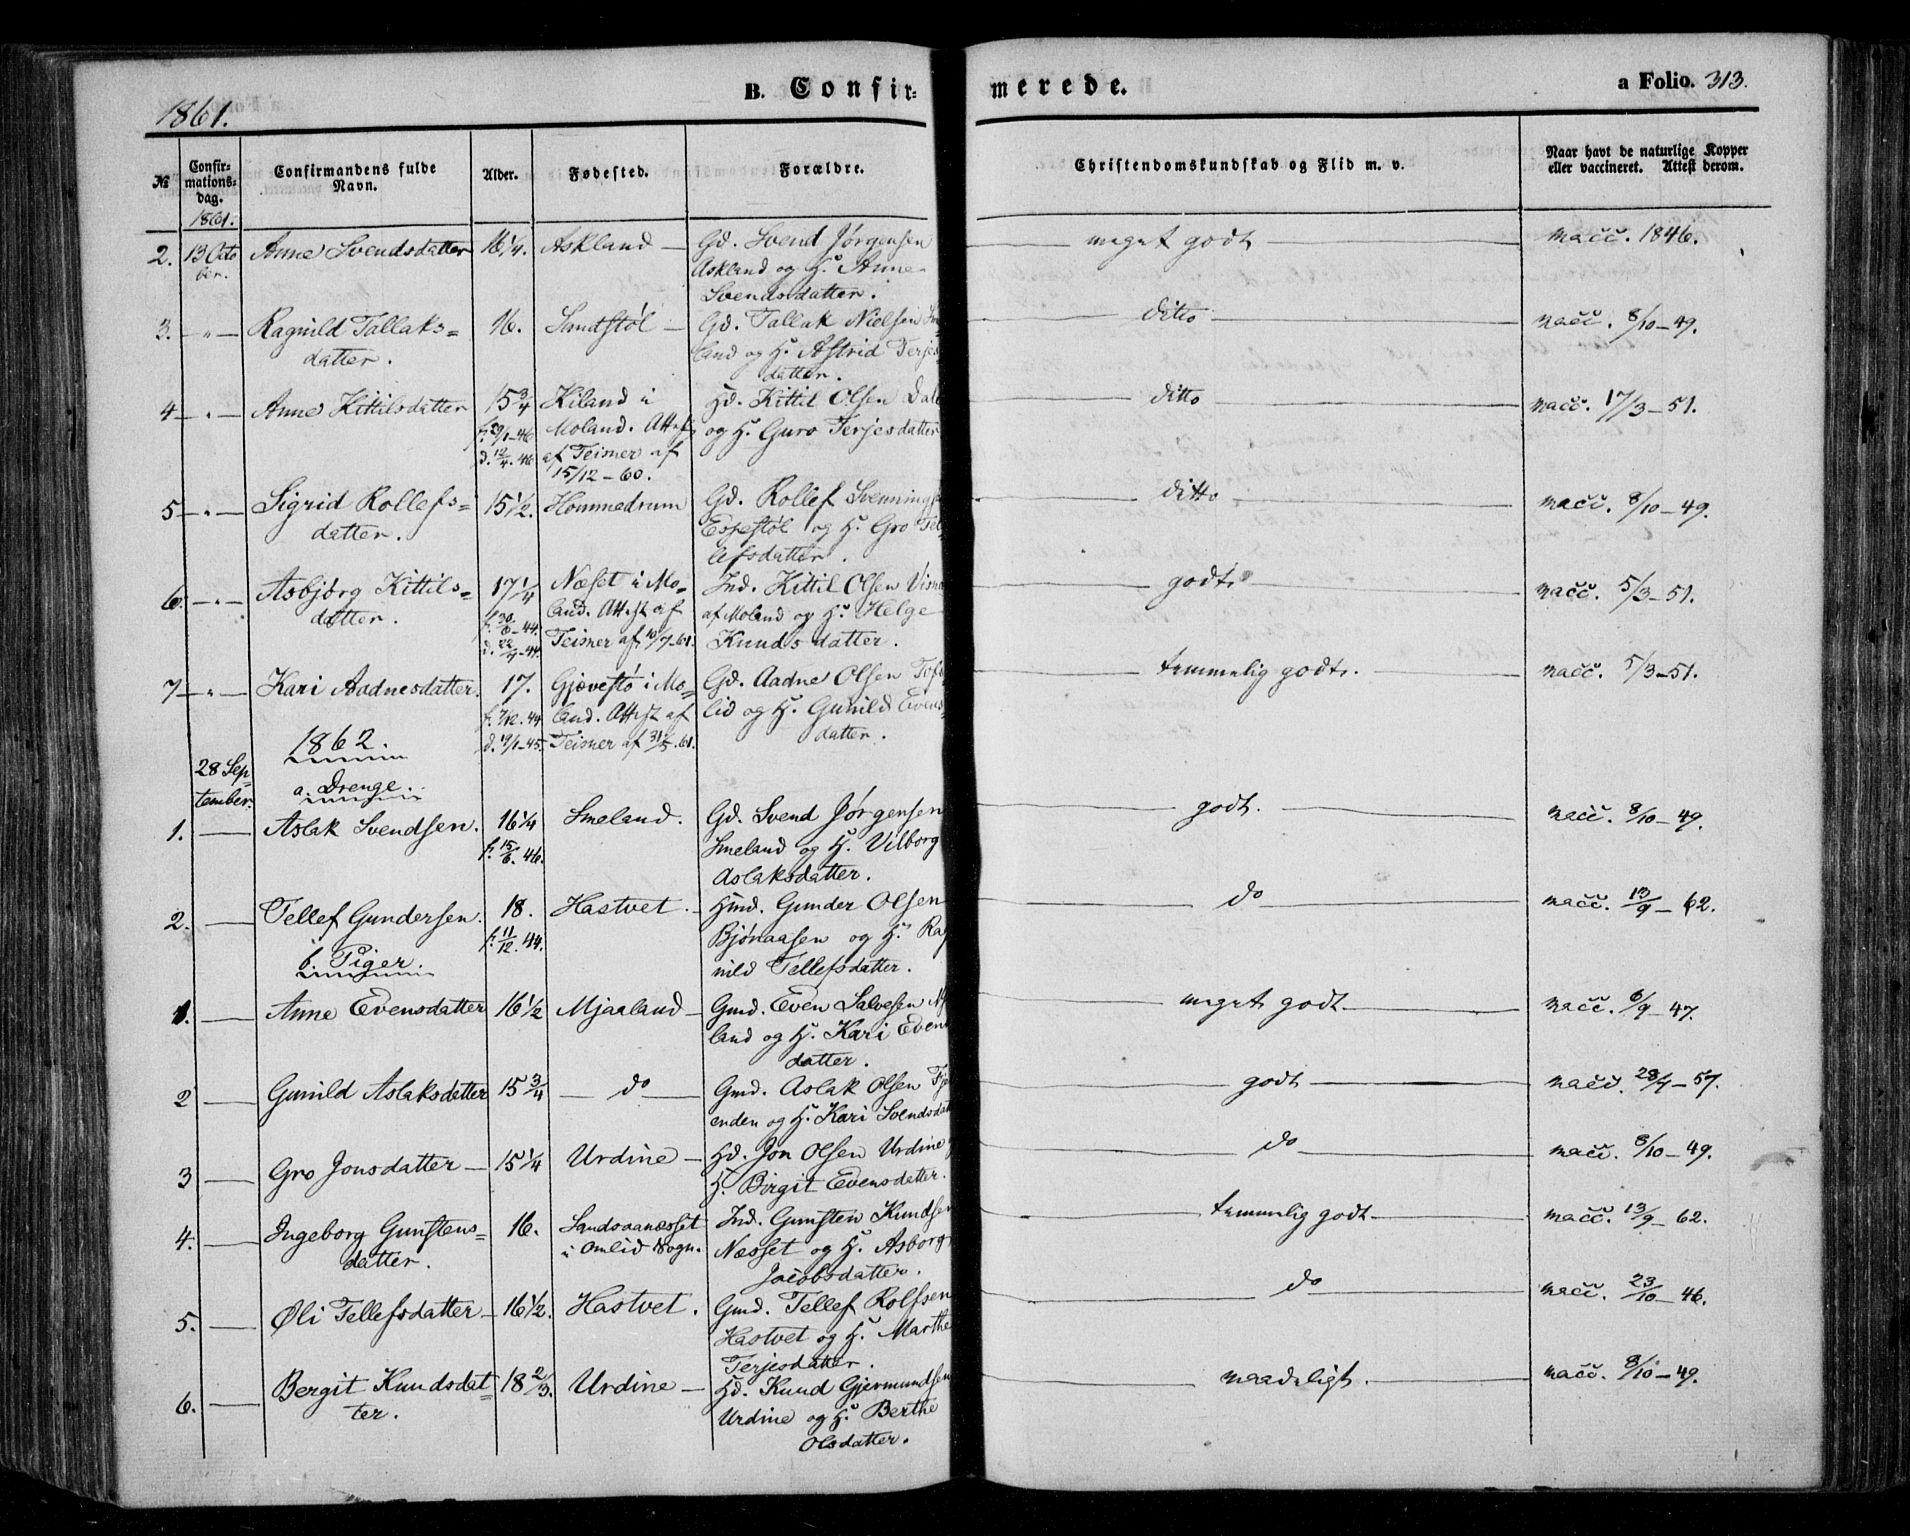 1861.
B. Confir- merede.
a Folio. 313.
№
Confir-
mations-
dag.
Confirmandens fulde
Navn.
Alder.
Fødested.
Forældre.
Christendomskundskab og Flid m. v.
Naar havt de naturlige Kopper
eller vaccineret. Attest derom.
1861.
2. 13 Octo Anne Svendsdatter 16 1/4. Askland Gd. Svend Jørgensen meget godt vacc. 1846.
ber. Askland og H. Anne
Svendsdatter.
3. " Ragnild Tallaks= 16. Sandstøl Gd. Tallak Nielsen ditto vacc. 8/10-49.
datter. land og H. Astrid Terjes
datter.
4 " Anne Kittilsdatter 15 3/4 Kiland i Hd. Kittil Olsen ditto vacc. 17/3-51.
f. 29/1-46 Moland. Attest og H. Guro Terjesdatter
d. 12/4. 46 af Teisner af
15/12-60.
5 " Sigrid Rollefs= 15 1/2. Hommedrum Gd. Rollef Svennings ditto vacc. 8/10-49.
datter. Espestøl og H. Gro Tel
lefsdatter.
6. " Asbjørg Kittils= 17 1/4 Næset i Mo= Ind. Kittil Olsen godt. vacc. 5/3-51.
datter. land. Attest af af Moland og H. Helge
d. 22/9-44. Teisner af 10/7-61. Knudsdatter.
7 " Kari Aadnesdatter. 17. Gjøvestø i Mo= Gd. Aadne Olsen temmelig godt. vacc. 5/3-51.
land. Attest af lid og H. Gunild Evens
d. 19/1-45. Teisner af 31/5. 61. datter.
1862.
28 Sep=
tember.
a. Drenge.
1. Aslak Svendsen. 16 1/4 Smeland. Gd. Svend Jørgensen godt. vacc. 8/10-49.
f. 15/6. 46. Smeland og H. Vilborg
Aslaksdatter.
2. Tellef Gundersen. 18. Hastvet. Hmd. Gunder Olsen do vacc. 13/9-62.
f. 11/12. 44. Bjønaasen og H. Rag
nild Tellefsdatter.
b. Piger.
1. Anne Evensdatter 16 1/2 Mjaaland Gmd. Even Salvesen meget godt vacc. 6/9-47.
land og H. Kari Evens
datter.
2 Gunild Aslaksdatter 15 3/4 do Gmd. Aslak Olsen godt vacc. 28/9-57.
enden og H. Kari Svendsdat
3 Gro Jonsdatter 15 1/4 Urdine Hd. Jon Olsen Urdine do vacc. 8/10-49.
H. Birgit Evensdatter.
4. Ingeborg Gunstens= 16. Sandvaanæsset Ind. Gunsten Knudsen temmelig godt vacc. 13/9-62.
datter. i Omlid Sogn. Næsset og H. Asborg
Jacobsdatter.
5. Øli Tellefsdatter 16 1/2. Hastvet. Gmd. Tellef Rolfsen do vacc. 23/10-46.
Hastvet og H. Marthe
Terjesdatter.
6. Bergit Knudsdat= 18 2/3. Urdine Hd. Knud Gjermundsen maadeligt. vacc. 8/10-49.
ter. Urdine og H. Berthe
Olsdatter.